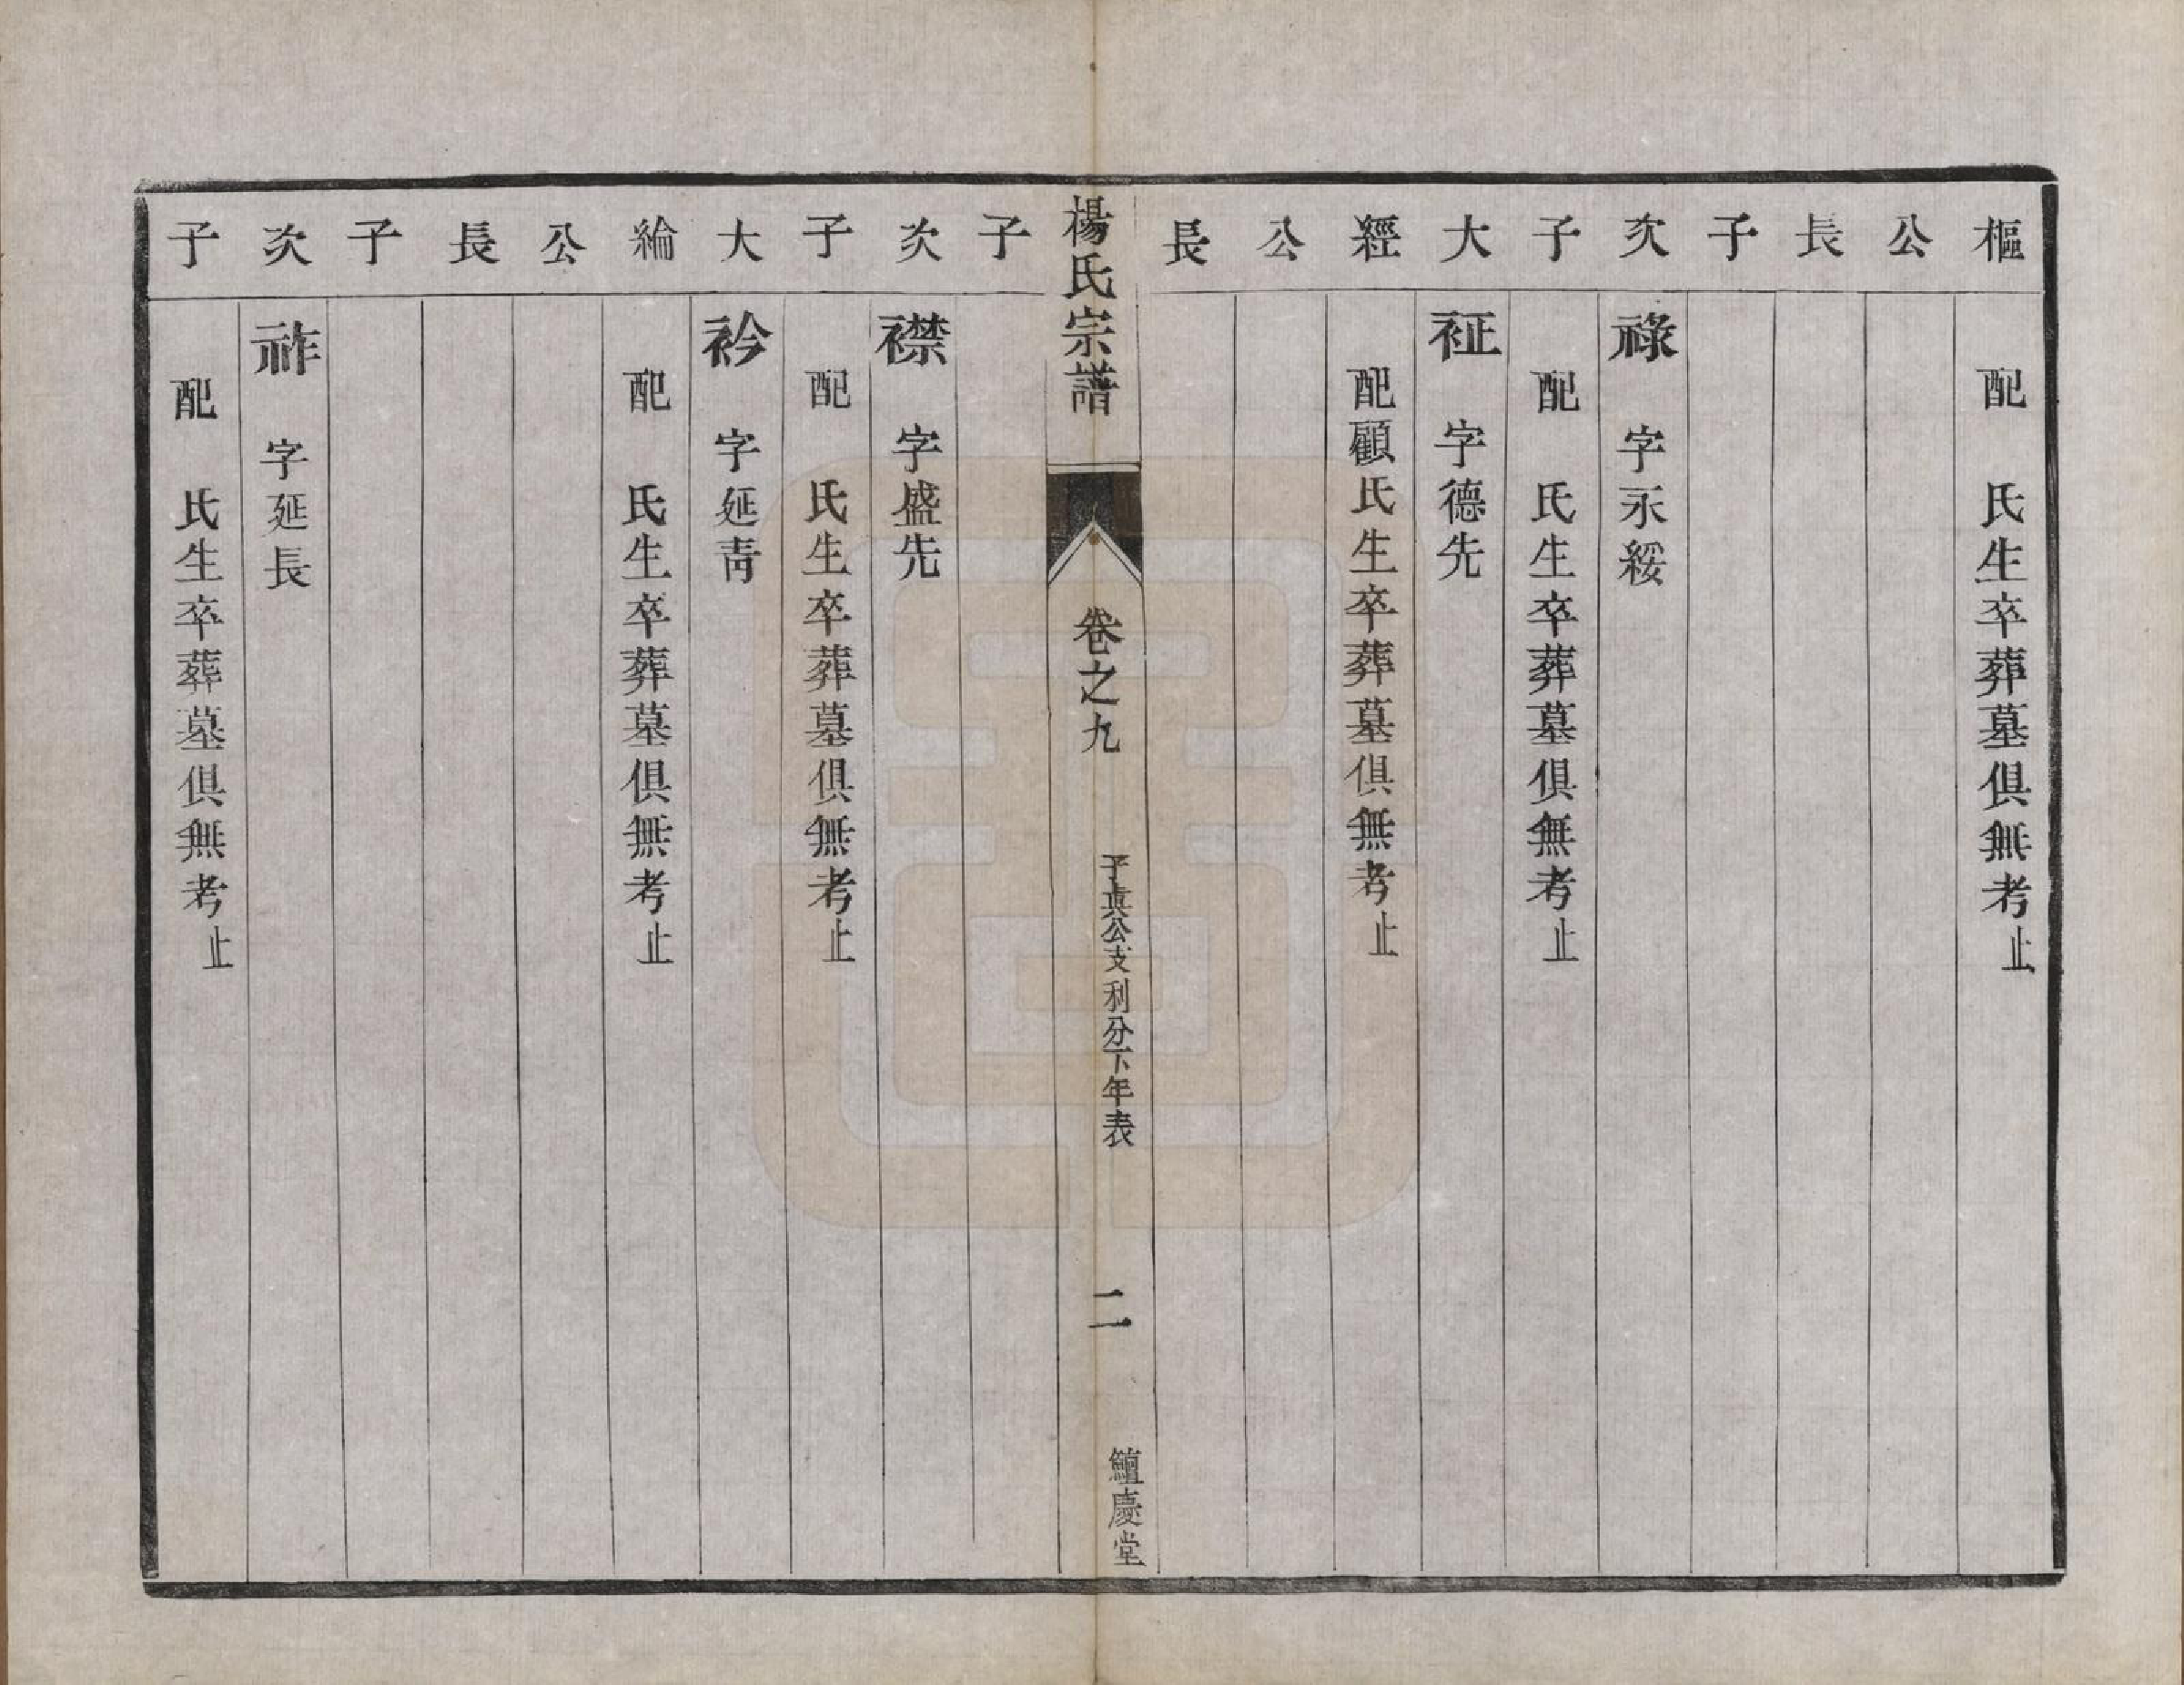 樞公長子次子大經公長
配　氏生卒葬墓俱無考止
祿　字永綏
配　氏生卒葬墓俱無考止
袵　字德先
配顧氏生卒葬墓俱無考止
楊氏宗譜
卷之九
子真公支利分下年表
二
鱣慶堂
子次子大綸公長子次子
襟　字盛先
配　氏生卒葬墓俱無考止
衿　字延青
配　氏生卒葬墓俱無考止
祚　字延長
配　氏生卒葬墓俱無考止